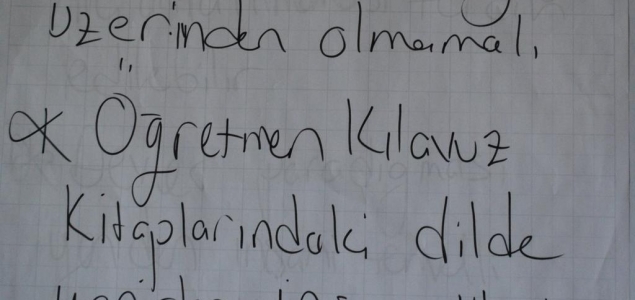 üzerinden olmamalı
* Öğretmen Kılavuz
Kitaplarındaki dilde